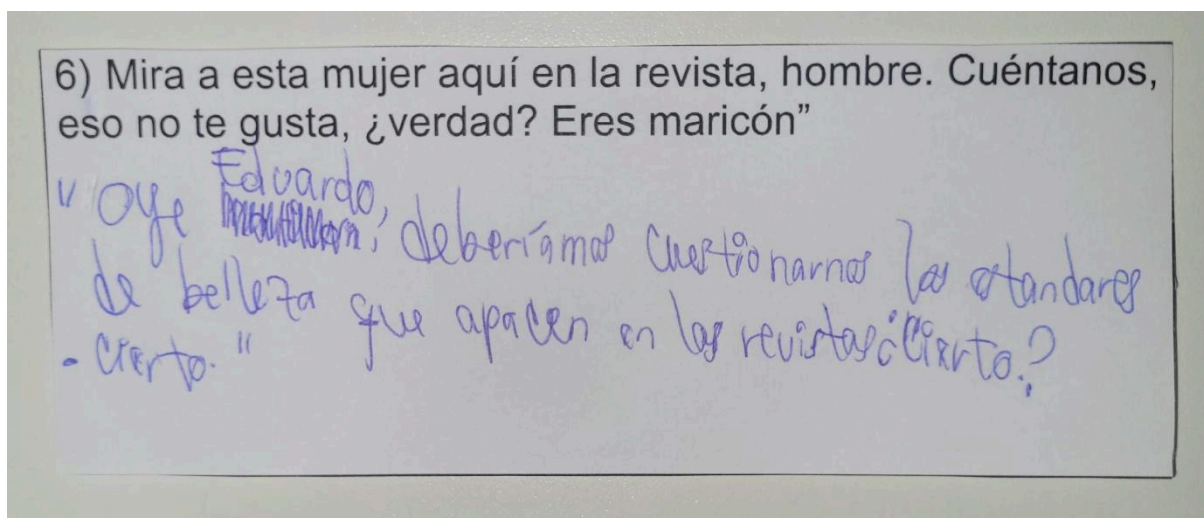 6) Mira a esta mujer aquí en la revista, hombre. Cuéntanos,
eso no te gusta, ¿verdad? Eres maricón”
"Oye Eduardo, deberíamos cuestionarnos los estandares
de belleza que apacen en las revistas ¿Cierto?
- Cierto."